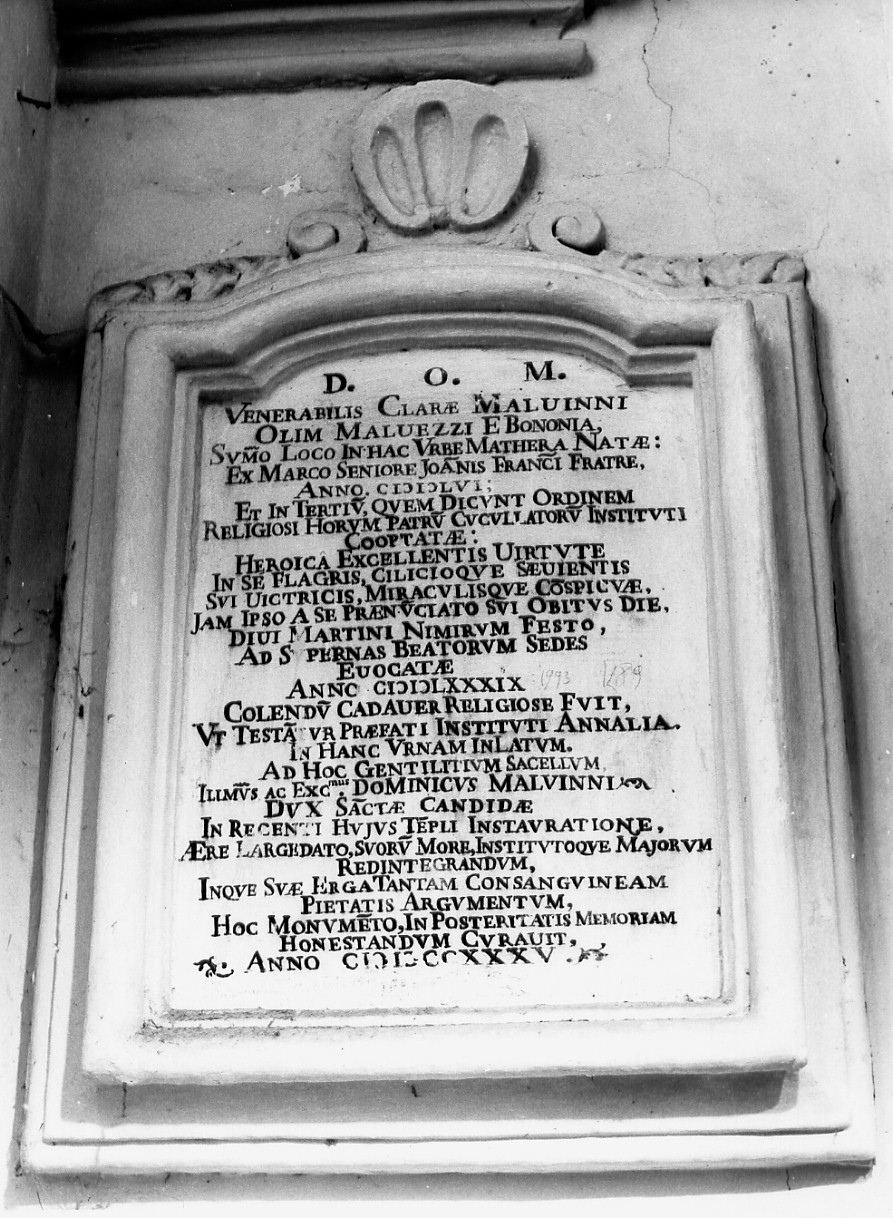 D. O. M.
VENERABILIS CLARÆ MALUINNI
OLIM MALUEZZI E BONONIA,
SVM̃O LOCO IN HAC VRBE MATHERA NATÆ:
EX MARCO SENIORE JOÃNIS FRANCI FRATRE,
ANNO. CIↃIↃLVI;
ET IN TERTIṼ, QVEM DICVNT ORDINEM
RELIGIOSI HORVM PATRṼ CVCVLLATORṼ INSTITVTI
COOPTATÆ:
HEROICÂ EXCELLENTIS UIRTVTE
IN SE FLAGRIS, CILICIOQVE SÆUIENTIS
SVI UICTRICIS, MIRACVLISQVE CÕSPICVÆ,
JAM IPSO A SE PRÆNṼCIATO SVI OBITVS DIE,
DIUI MARTINI NIMIRVM FESTO,
AD S PERNAS BEATORVM SEDES
EUOCATÆ
ANNO CIↃIↃLXXXIX 1993 1489
COLENDṼ CADAUER RELIGIOSE FVIT,
VT TESTÃ VR PRÆFATI INSTITVTI ANNALIA.
IN HANC VRNAM INLATVM.
AD HOC GENTILITIVM SACELLVM
ILLMṼS AC EXCmus. DOMINICVS MALVINNI
DVX SÃCTÆ CANDIDÆ
IN RECENTI HUJVS TẼPLI INSTAVRATIONE,
ÆRE LARGEDATO, SVORṼ MORE, INSTITVTOQVE MAJORVM
REDINTEGRANDVM,
INQVE SVÆ ERGA TANTAM CONSANGVINEAM
PIETATIS ARGVMENTVM,
HOC MONVMẼTO, IN POSTERITATIS MEMORIAM
HONESTANDVM CVRAUIT,
ANNO CIↃIↃCCXXXV.